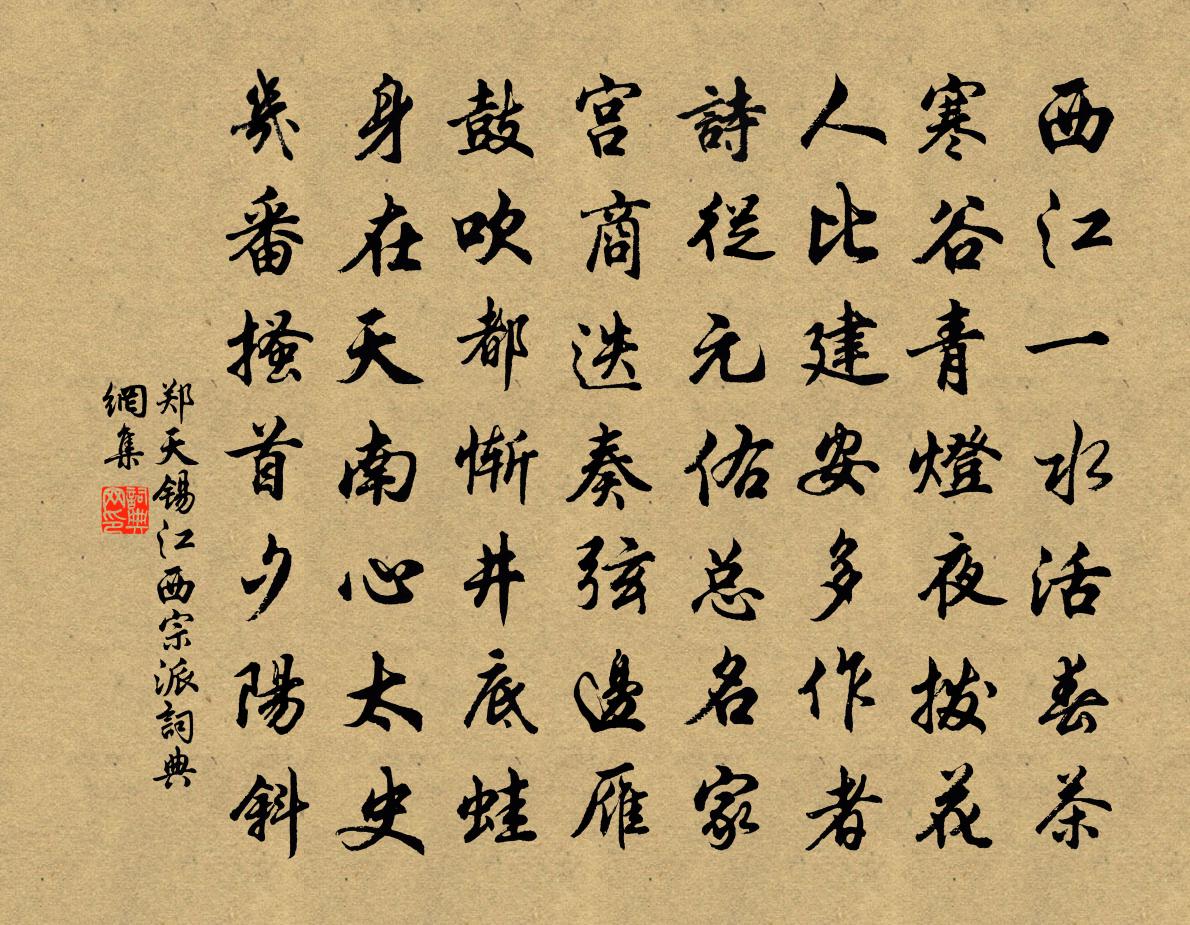 西江一水活春茶
寒谷青燈夜拨花
人比建安多作者
詩從元佑总名家
宫商迭奏弦邊雁
鼓吹都惭井底蛙
身在天南心太史
幾番搔首夕陽斜
郑天锡江西宗派詞典
網集
詞典
网印